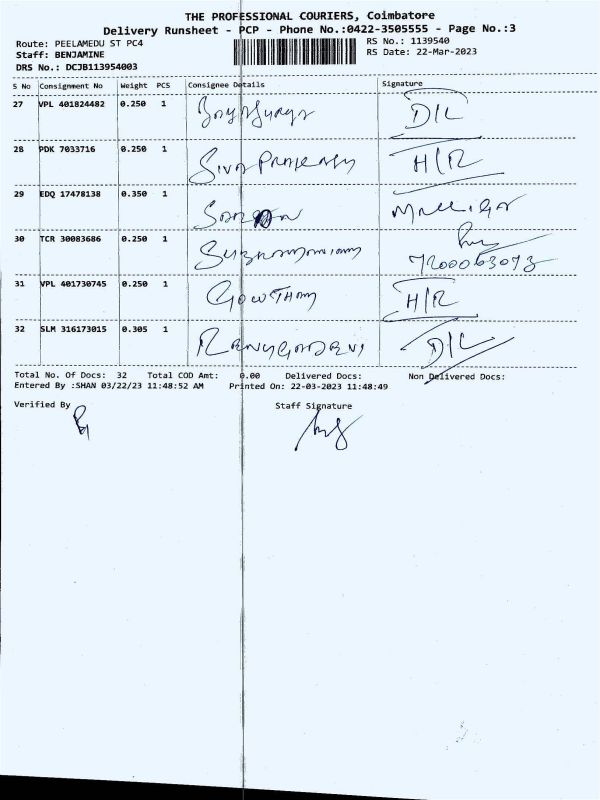 THE PROFESSIONAL COURIERS, Coimbatore
Delivery Runsheet - PCP - Phone No.:0422-3505555 - Page No.:3
Route: PEELAMEDU ST PC4 RS No.: 1139540
Staff: BENJAMINE RS Date: 22-Mar-2023
DRS No.: DCJB113954003
S No Consignment No Weight PCS Consignee Details Signature
27 VPL 401824482 0.250 1 D/L
28 PDK 7033716 0.250 1 Siva Prakash H/R
29 EDQ 17478138 0.350 1
30 TCR 30083686 0.250 1 7200063073
31 VPL 401730745 0.250 1 Gowtham H/R
32 SLM 316173015 0.305 1 Renugadevi D/L
Total No. Of Docs: 32 Total COD Amt: 0.00 Delivered Docs: Non Delivered Docs:
Entered By :SHAN 03/22/23 11:48:52 AM Printed On: 22-03-2023 11:48:49
Verified By Staff Signature